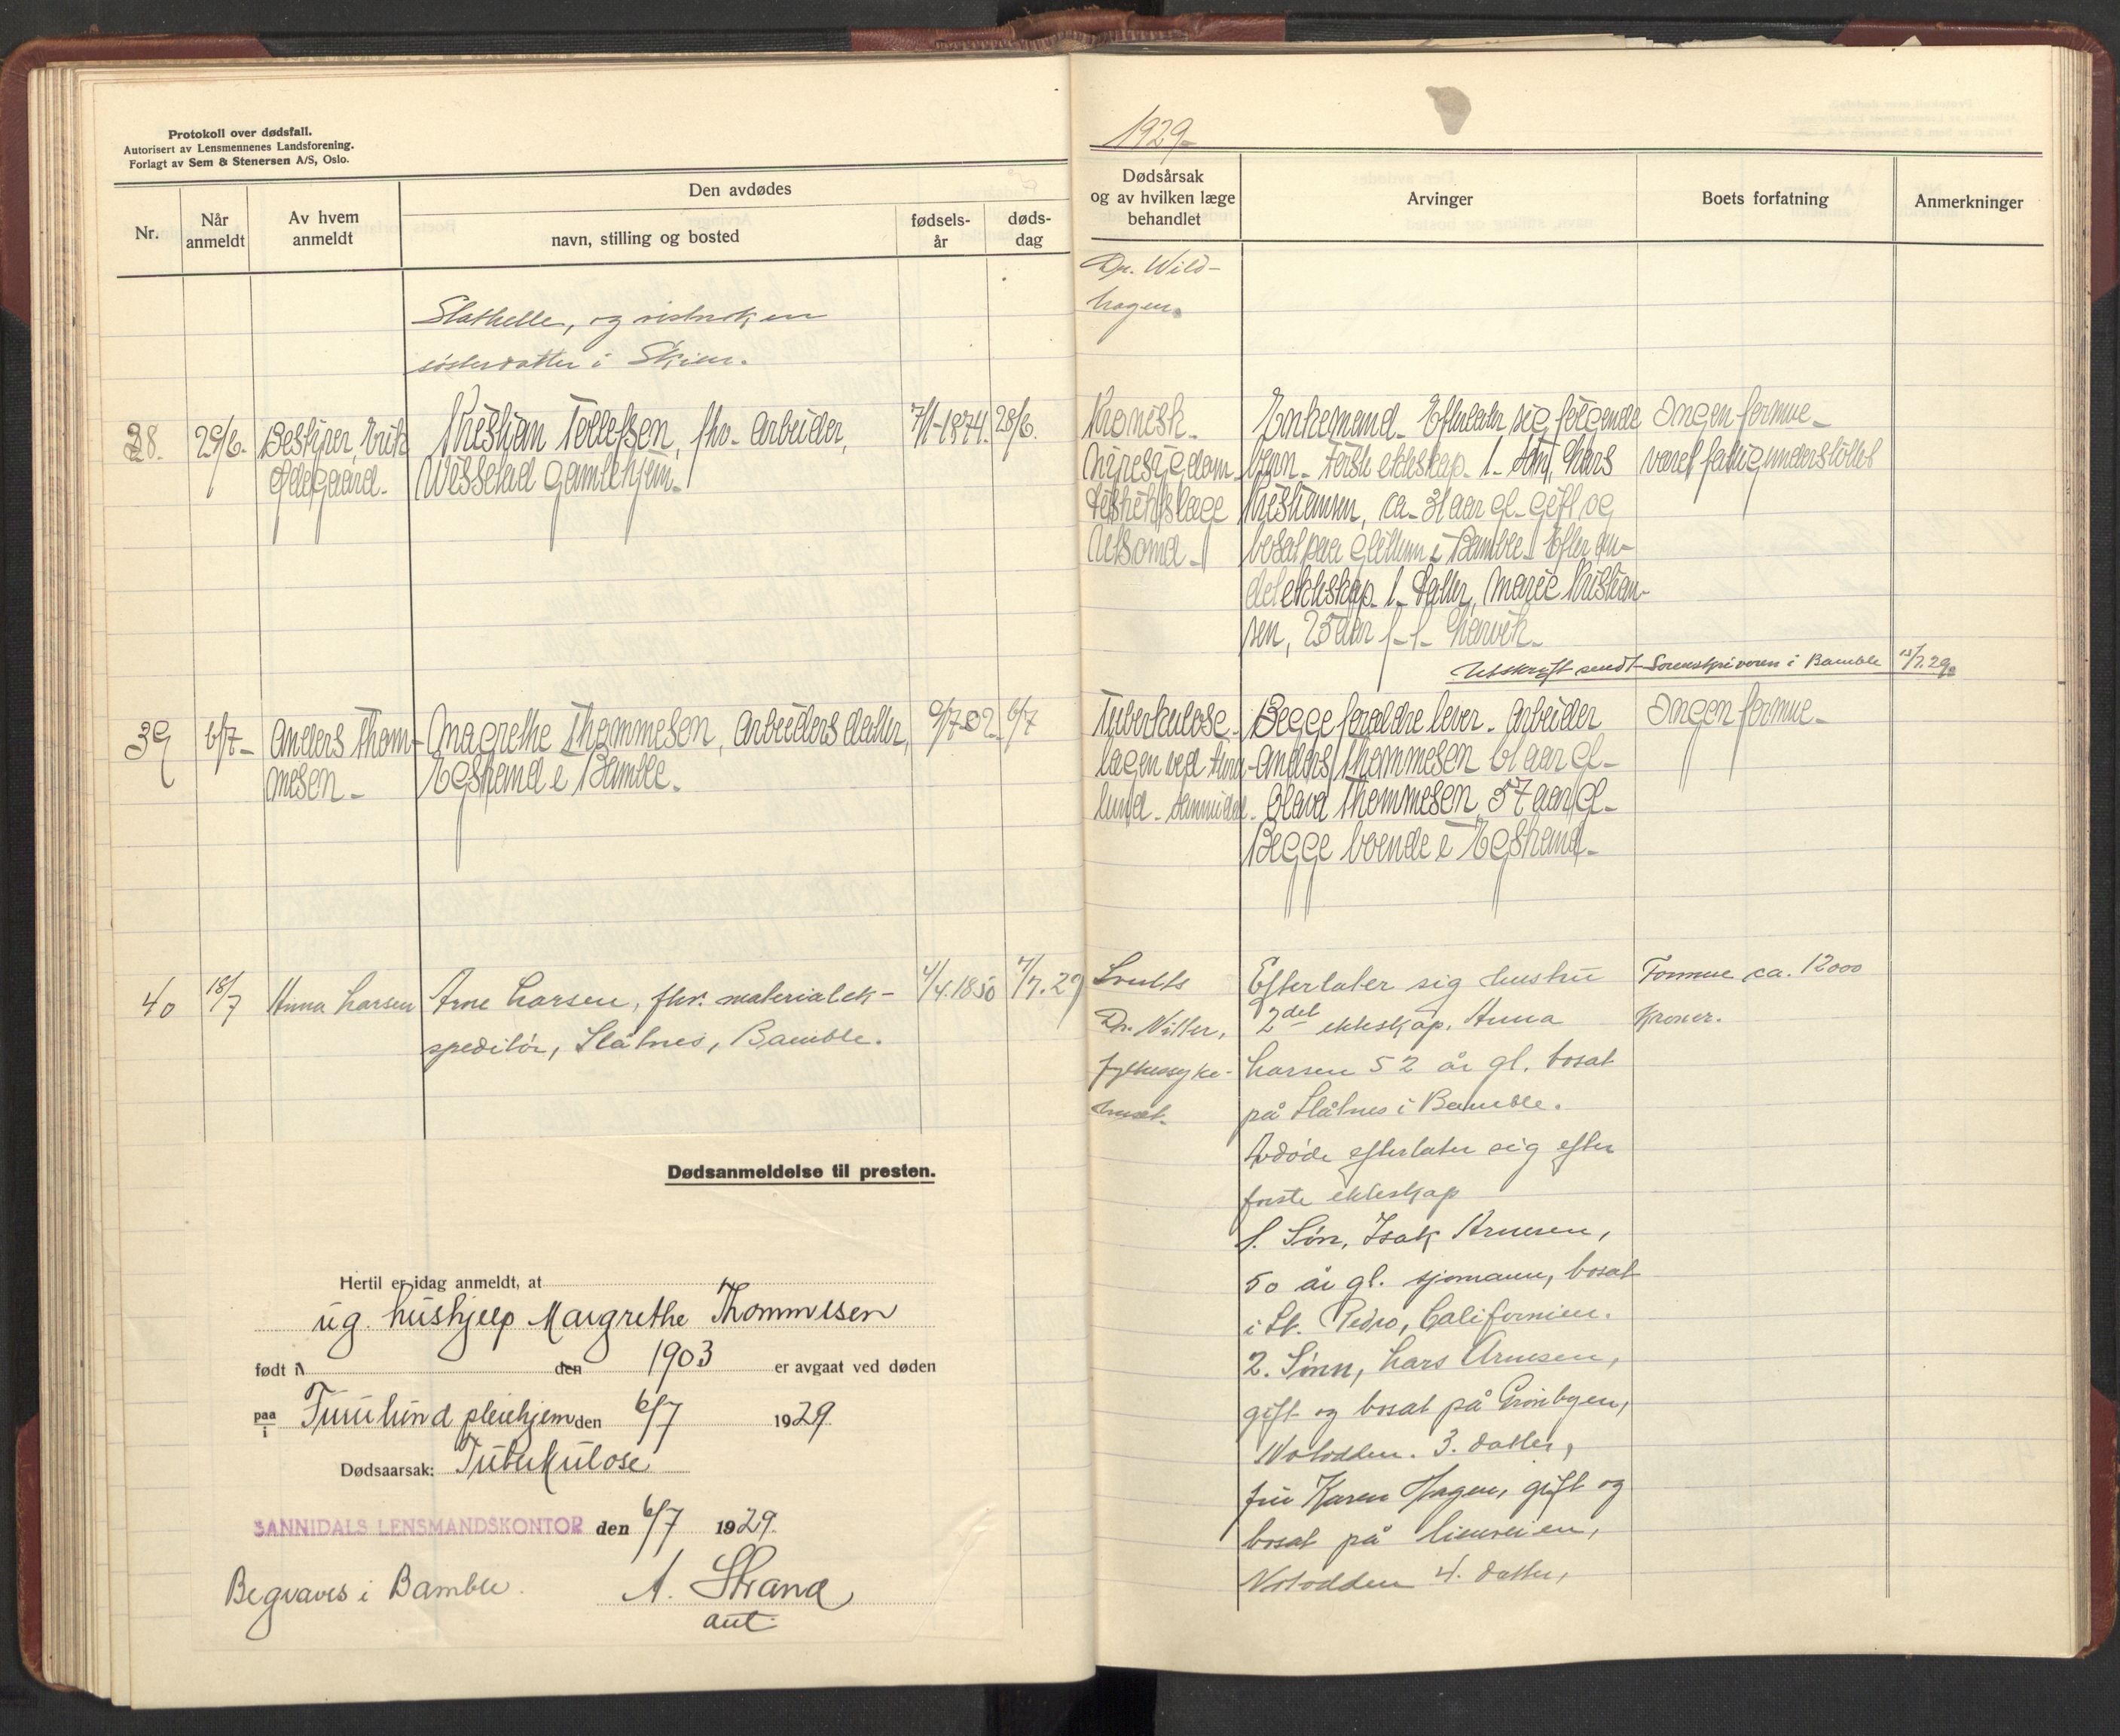 Protokoll over dødsfall.
Autorisert av Lensmennenes Landsforening.
Forlagt av Sem & Stenersen A/S, Oslo.
Nr.
Når anmeldt
Av hvem anmeldt
Den avdødes
navn, stilling og bosted
fødsels-år
døds-dag
Stathelle, og vistnok en
søsterdatter i Skien.
38.
29/6.
Bestyrer Erik
Ødegaard.
Kristian Tollefsen, fhv. Arbeider,
Wissestad Gamlehjem.
7/1-1874.
28/6.
39
6/7-
Anders Thom-
mesen -
Magrethe Thommesen, Arbeiders datter,
Egstrand i Bamble.
9/7-02-
6/7
40
18/7
Anna Larsen
Arne Larsen, fhv. materialek-
speditör, Slåtnes, Bamble.
4/4.1850
7/7.29
Dødsanmeldelse til presten.
Hertil er idag anmeldt, at
ug. hushjelp Margrethe Thommesen
født i den 1903 er avgaat ved døden
paa/i Furulund pleiehjem den 6/7 1929.
Dødsaarsak: Tuberkulose
SANNIDALS LENSMANDSKONTOR den 6/7 1929.
Begraves i Bamble.
A. Strand
aut.
1929-
Dødsårsak
og av hvilken læge
behandlet
Arvinger
Boets forfatning
Anmerkninger
Dr. Wild-
hagen.
Kronisk
nyresygdom
distriktslæge
Enkemand. Efterlater sig følgende
barn. Første ekteskap 1. Søn, Lars
Kristiansen, ca. 31 aar gl. gift og
bosat paa i Bamble. Efter an-
det ekteskap 1. datter, Marie Kristian-
sen, 25 aar Larvik.
Ingen formue -
været fattigunderstöttet
Utskrift sendt Sorenskriveren i Bamble 13/7.29.
Tuberkulose.
Lægen ved Furu-
lund. Sannidal.
Begge foraldre lever. Arbeider
Anders Thommesen 61 aar gl-
Olava Thommesen, 57 aar gl.
Begge boende i Egstrand.
Ingen formue -
Dr.
fylkessyke-
huset.
Efterlater sig hustru
2det ekteskap. Anna
Larsen 52 år gl. bosat
på Slåtnes i Bamble.
Avdöde efterlater sig efter
förste ekteskap
1. Sön, Isak Arnesen,
50 år gl. sjömann, bosat
i St. Pedro, Californien.
2. Sönn, Lars Arnesen,
gift og bosat på Grönbyen,
Notodden. 3. datter,
fru Karen Hagen, gift og
bosat på Lienveien,
Notodden 4. datter,
Formue ca. 12000
Kroner.